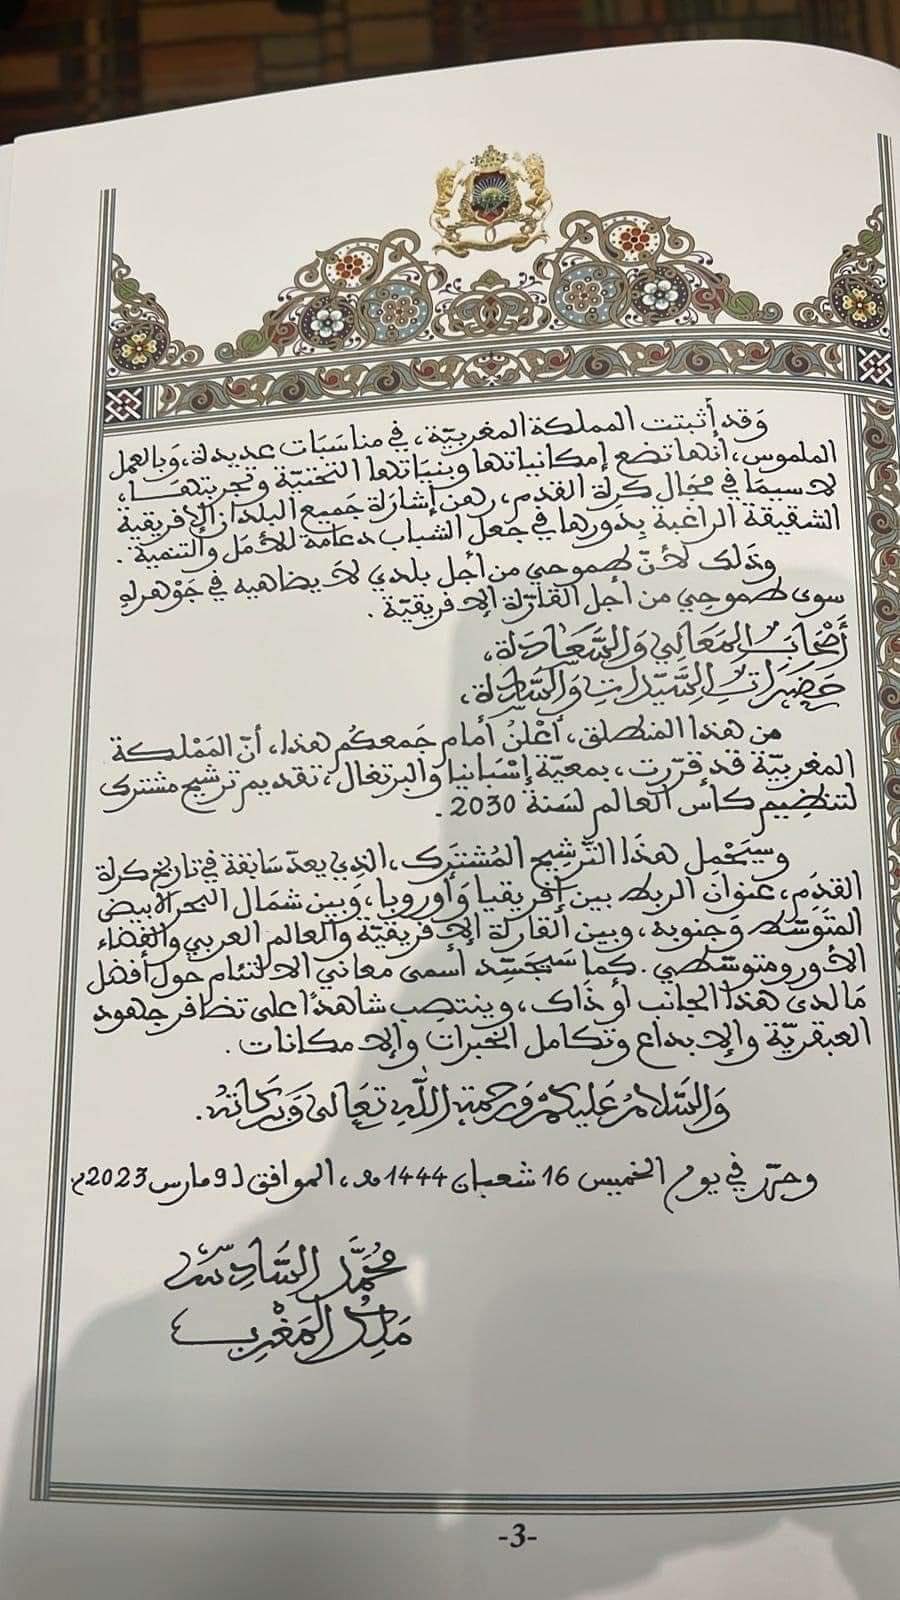 وَقد أثبتت المملكة المغربيّة، في مناسَبَات عديدة، وَبالعمل
الملموس، أنها تضع إمكانياتها وبنيَاتها التحْتيّة وتجربتهَـا،
لاسيمَا في مجَال كرة القدم، رهن إشارة جَميع البلدان الإفريقية
الشقيقة الراغبة بِدَورها في جعل الشباب دعامة للأمَل والتنمية.
وذلك لأنّ طموحي من أجل بلدي لا يضاهيه في جَوْهره
سوى طموحي من أجل القارّة الإفريقيّة.
أَصْحَابَ المَعَالي وَالسَّعَادَة،
حَضَرَات السَّيّدات وَالسَّادَة،
من هذا المنطلق، أعْلنُ أمام جَمعكُم هذا، أنّ المَمْلكة
المغربيّة قد قرّرت، بمعيّة إسْبَانيا والبرتغال، تقديم ترشيح مشترك
لتنظيم كأس العالم لسَنة 2030.
وسيَحْمل هذَا التّرشيح المُشترَك، الذي يعدّ سَابقة في تاريخ كرة
القدَم، عنوَان الربط بين إفريقيا وَأوروبا، وَبين شمَال البحر الأبيض
المتوَسّط وَجنوبه، وبين القارة الإفريقيّة والعالم العربي والفضاء
الأورومتوسّطي. كما سَيجَسّد أسمى معاني الالتئام حول أفضل
مَا لدى هذا الجانب أو ذَاك، وينتصِب شاهدًا على تظافر جهود
العبقريّة والإبداع وتكامل الخبرات والإمكانات.
وَالسَّلامُ عَليكمْ وَرحمة اللَّه تعَالى وَبَركَاتُهُ.
وحرّر في يوم الخميس 16 شعبان 1444 هـ، الموافق لـ 9 مارس 2023م
مُحَمَّد السَّادِسُ
مَلكُ المَغْرِب
-3-